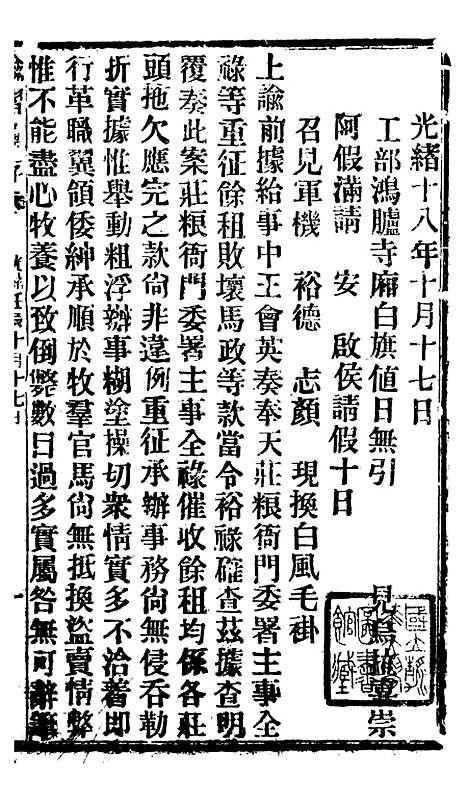 光緒十八年十月十七日
工部鴻臚寺廂白旗值日無引
見烏拉崇
阿假滿請　安　啟侯請假十日
召見軍機　裕德　志顏　現換白風毛褂
上諭前據給事中王會英奏奉天莊粮衙門委署主事全
祿等重征餘租敗壞馬政等款當令裕祿確查茲據查明
覆奏此案莊粮衙門委署主事全祿催收餘租均係各莊
頭拖欠應完之款尙非違例重征承辦事務尙無侵吞勒
折實據惟舉動粗浮辦事糊塗操切衆情實多不洽著即
行革職翼領倭紳承順於牧羣官馬尙無抵換盜賣情弊
惟不能盡心牧養以致倒斃數目過多實屬咎無可辭
十月十七日
國立
圖書
館藏